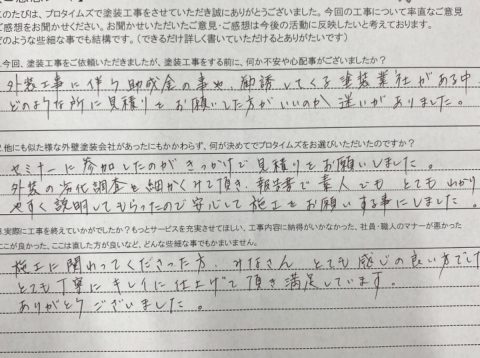 このたびは、プロタイムズで塗装工事をさせていただき誠にありがとうございました。今回の工事について率直なご意見
ご感想をお聞かせください。お聞かせいただいたご意見・ご感想は今後の活動に反映したいと考えております。
どのような些細な事でも結構です。(できるだけ詳しく書いていただけるとありがたいです)
1.今回、塗装工事をご依頼いただきましたが、塗装工事をする前に、何か不安や心配事がございましたか?
外装工事に伴う助成金の事や、勧誘してくる塗装業社がある中、
どのような所に見積りをお願いした方がいいのか 迷いがありました。
2.他にも似た様な外壁塗装会社があったにもかかわらず、何が決めてでプロタイムズをお選びいただいたのですか?
セミナーに参加したのがきっかけで見積りをお願いしました。
外装の劣化調査を細かくして頂き、報告書で素人でも とてもわかり
やすく説明してもらったので安心して施工をお願いする事にしました。
3.実際に工事を終えていかがでしたか?もっとサービスを充実させてほしい、工事内容に納得がいかなかった、社員・職人のマナーが悪かった
ここが良かった、ここは直した方が良いなど、どんな些細な事でもかまいません。
施工に関わってくださった方、みなさん とても感じの良い方でした
とても丁寧にキレイに仕上げて頂き満足しています。
ありがとうございました。